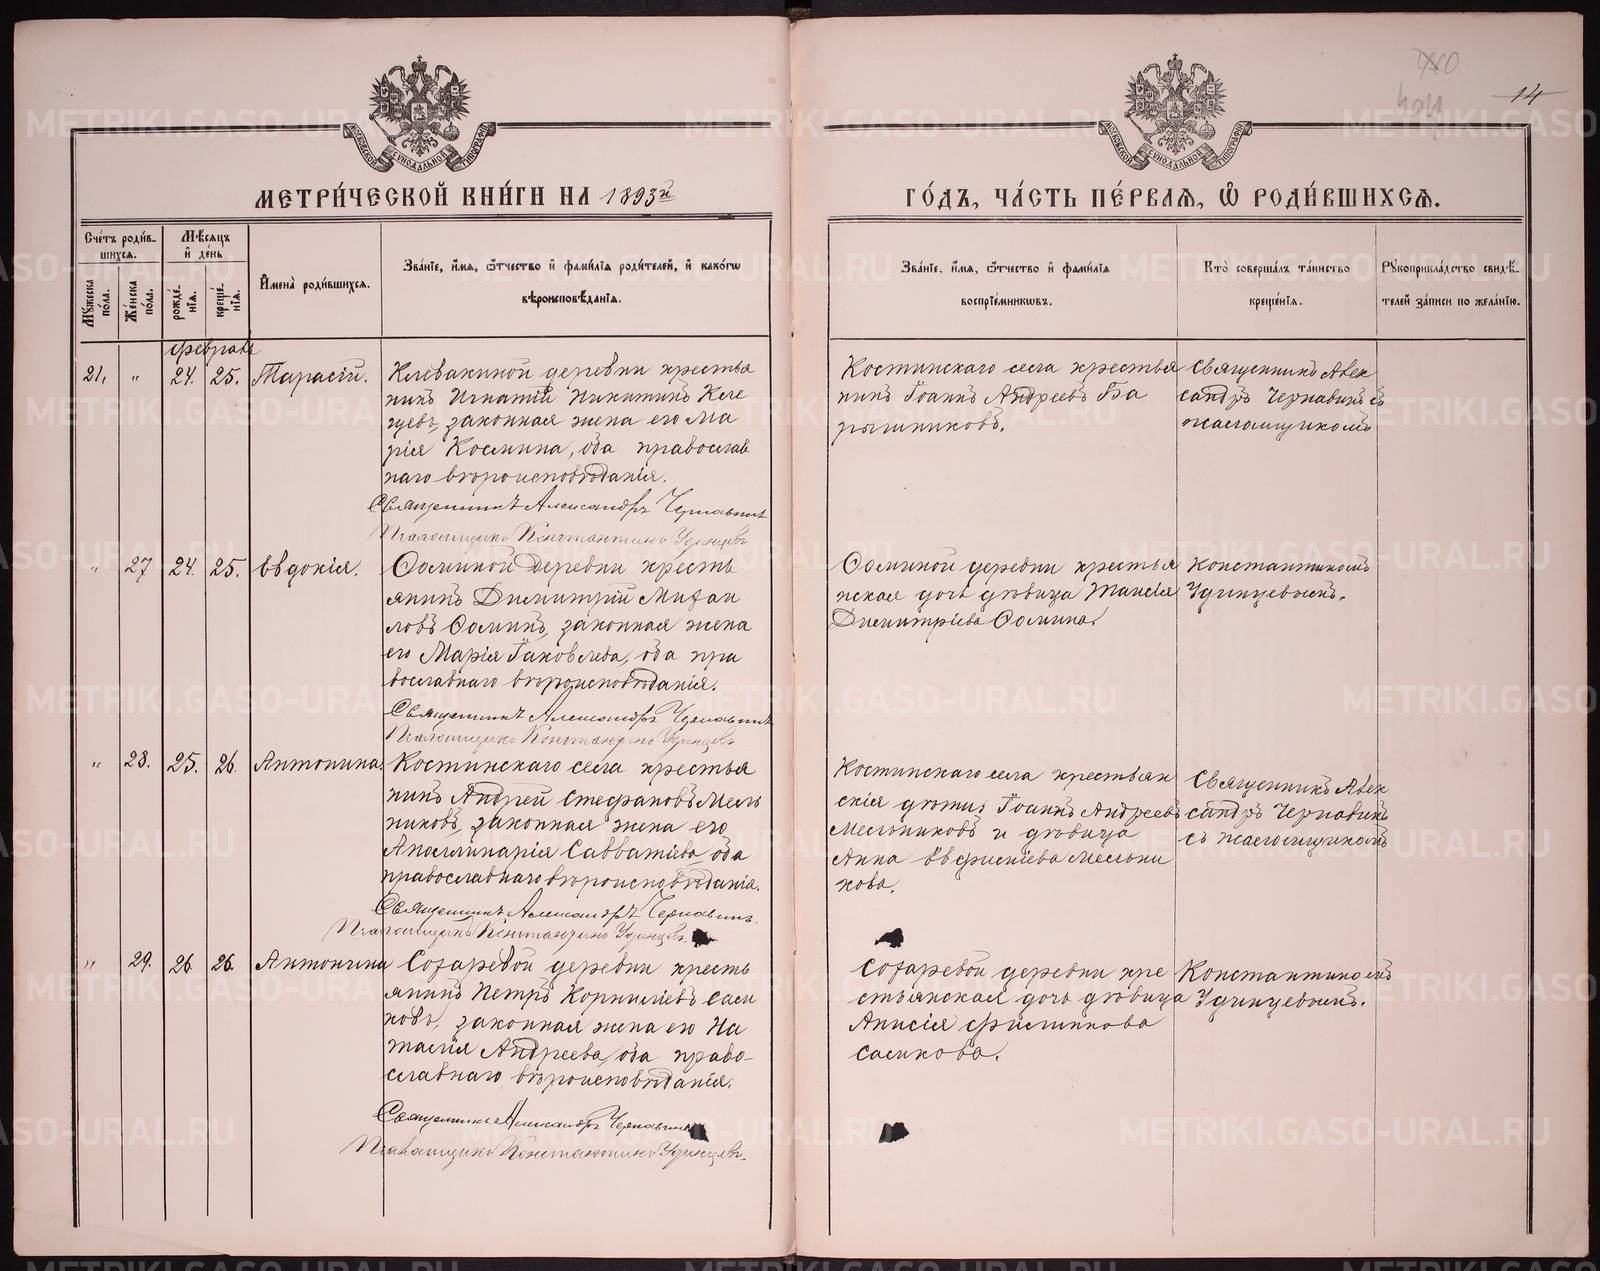 14
МЕТРИ́ЧЕСКОЙ КНИ́ГИ НА 1893й
ГО́ДЪ, ЧА́СТЬ ПЕ́РВАѦ, Ѿ РОДИ́ВШИХСѦ.
Сче́тъ роди́в-
шихся.
Мѣ́сяцъ
и҆ де́нь
Му́жеска
по́ла.
Же́нска
по́ла.
рожде́-
нїя.
креще́-
нїя.
И҆мена̀ роди́вшихся.
Зва́нїе, и҆́мя, ѻ҆́тчество и҆ фамилїя роди́телей, и҆ како́гѡ
вѣроисповѣ́данїя.
Зва́нїе, и҆́мя, ѻ҆́тчество и҆ фами́лїя
воспрїе́мниковъ.
Кто̀ соверша́лъ та́инство
креще́нїя.
Рꙋкоприкла́дство свидѣ́-
телей за́писи по жела́нїю.
Февраля
21. " 24. 25. Тарасій. Клевакиной деревни крестья
нинъ Игнатій Никитинъ Клe
щевъ, законная жена его Ма
рія Космина, оба православ
наго вѣроисповѣданія.
Священникъ Александръ Чернавинъ
Псаломщикъ Константинъ Удинцевъ
Костинскаго села крестья
нинъ Іоаннъ Андреевъ Ба
рышниковъ.
Священникъ Алек
сандръ Чернавинъ съ
псаломщикомъ
" 27 24. 25. Евдокія. Ѳоминой деревни кресть
янинъ Димитрій Михаи
ловъ Ѳоминъ, законная жена
его Марія Іаковлева, оба пра
вославнаго вѣроисповѣданія.
Священникъ Александръ Чернавинъ
Псаломщикъ Константинъ Удинцевъ
Ѳоминой деревни крестья
нская дочь дѣвица Таисія
Димитріева Ѳомина.
Константиномъ
Удинцевымъ.
" 28. 25. 26. Антонина. Костинскаго села крестья
нинъ Андрей Стефановъ Мель
никовъ, законная жена его
Аполлинарія Савватіева, оба
православнаго вѣроисповѣданія.
Священникъ Александръ Чернавинъ.
Псаломщикъ Константинъ Удинцевъ.
Костинскаго села крестьян
скія дѣти: Іоаннъ Андреевъ
Мельниковъ и дѣвица
Анна Евфиміева Мельни
кова.
Священникъ Алек
сандръ Чернавинъ
съ псаломщикомъ
" 29. 26. 26. Антонина Сохаревой деревни кресть
янинъ Петръ Корниліевъ Сали
ковъ, законная жена его На
талія Андреева, оба право-
славнаго вѣроисповѣданія.
Священникъ Александръ Чернавинъ
Псаломщикъ Константинъ Удинцевъ.
Сохаревой деревни кре
стьянская дочь дѣвица
Анисія Филиппова
Саликова.
Константиномъ
Удинцевымъ.